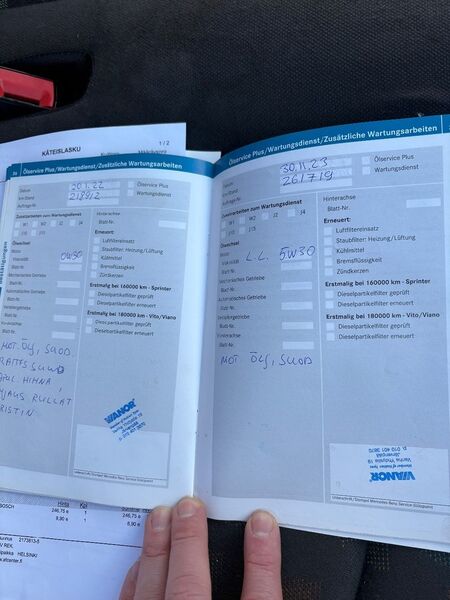 KÄTEISLASKU
1 / 2
30 Ölservice Plus/Wartungsdienst/Zusätzliche Wartungsarbeiten
Datum 20.1.22 Ölservice Plus
km-Stand 218912 Wartungsdienst
Auftrags-Nr.
Zusatzarbeiten zum Wartungsdienst
W1 W2 J2 J4
J10 J15
Ölwechsel
Motor
Viskosität 0W30
Blatt-Nr.
Mechanisches Getriebe
Blatt-Nr.
Automatisches Getriebe
Blatt-Nr.
Verteilergetriebe
Blatt-Nr.
Vorderachse
Blatt-Nr.
MOT. ÖLJ, SUOD.
HIHNA,
RULLAT
Hinterachse
Blatt-Nr.
Erneuert:
Luftfiltereinsatz
Staubfilter: Heizung/Lüftung
Kühlmittel
Bremsflüssigkeit
Zündkerzen
Erstmalig bei 160000 km - Sprinter
Dieselpartikelfilter geprüft
Dieselpartikelfilter erneuert
Erstmalig bei 180000 km - Vito/Viano
Dieselpartikelfilter geprüft
Dieselpartikelfilter erneuert
WANOR
Ölservice Plus/Wartungsdienst/Zusätzliche Wartungsarbeiten
Datum 30.11.23 Ölservice Plus
km-Stand 261719 Wartungsdienst
Auftrags-Nr.
Zusatzarbeiten zum Wartungsdienst
W1 W2 J2 J4
J10 J15
Ölwechsel
Motor
Viskosität L.L. 5W30
Blatt-Nr.
Mechanisches Getriebe
Blatt-Nr.
Automatisches Getriebe
Blatt-Nr.
Verteilergetriebe
Blatt-Nr.
Vorderachse
Blatt-Nr.
MOT. ÖLJ, SUOD
Hinterachse
Blatt-Nr.
Erneuert:
Luftfiltereinsatz
Staubfilter: Heizung/Lüftung
Kühlmittel
Bremsflüssigkeit
Zündkerzen
Erstmalig bei 160000 km - Sprinter
Dieselpartikelfilter geprüft
Dieselpartikelfilter erneuert
Erstmalig bei 180000 km - Vito/Viano
Dieselpartikelfilter geprüft
Dieselpartikelfilter erneuert
WANOR
Unterschrift/Stempel Mercedes-Benz Service-Stützpunkt
BOSCH
Hinta Kpl
246,75 e 1
8,90 e 1
2173813-5
HELSINKI